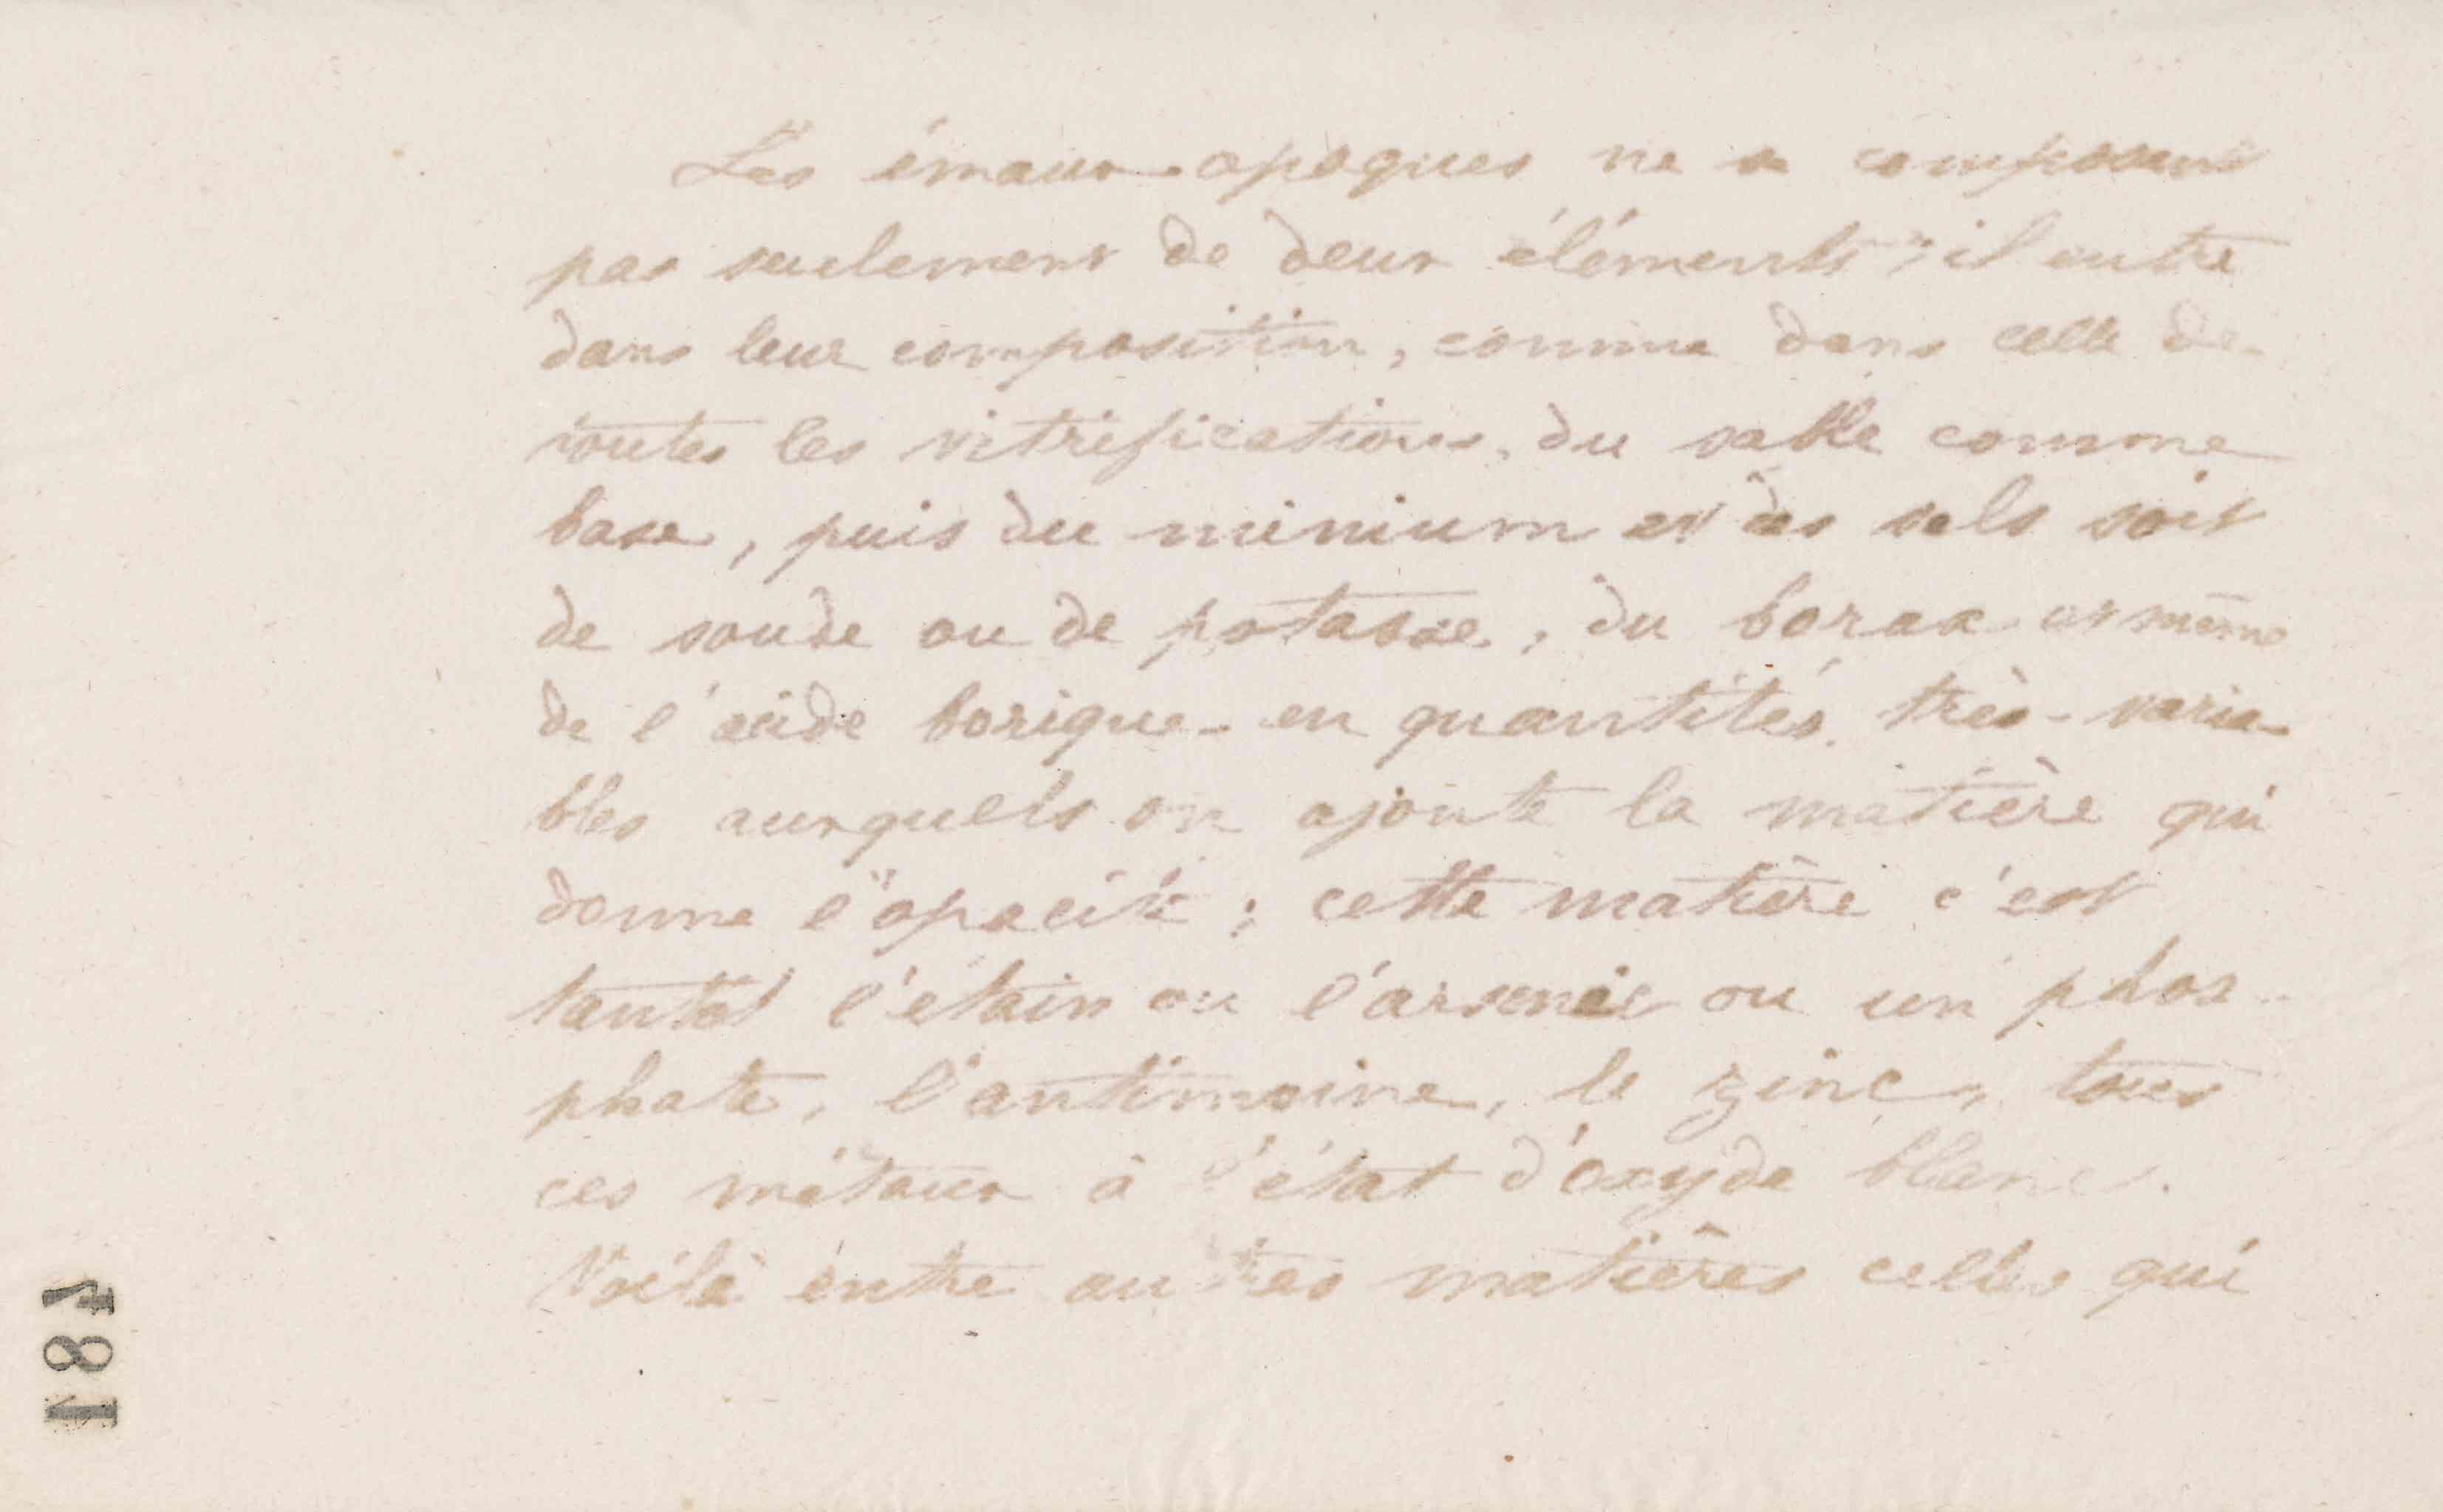 Les émaux opaques ne se composent
pas seulement de deux éléments ; il entre
dans leur composition, comme dans celle de
toutes les vitrifications, du sable comme
base, puis du minium et des sels soit
de soude ou de potasse, du borax et même
de l'acide borique en quantités très-varia-
bles auxquels on ajoute la matière qui
donne l'opacité ; cette matière c'est
tantôt l'étain ou l'arsenic ou un phos-
phate, l'antimoine, le zinc, tous
ces métaux à l'état d'oxyde blanc.
Voilà entre autres matières celles qui
184